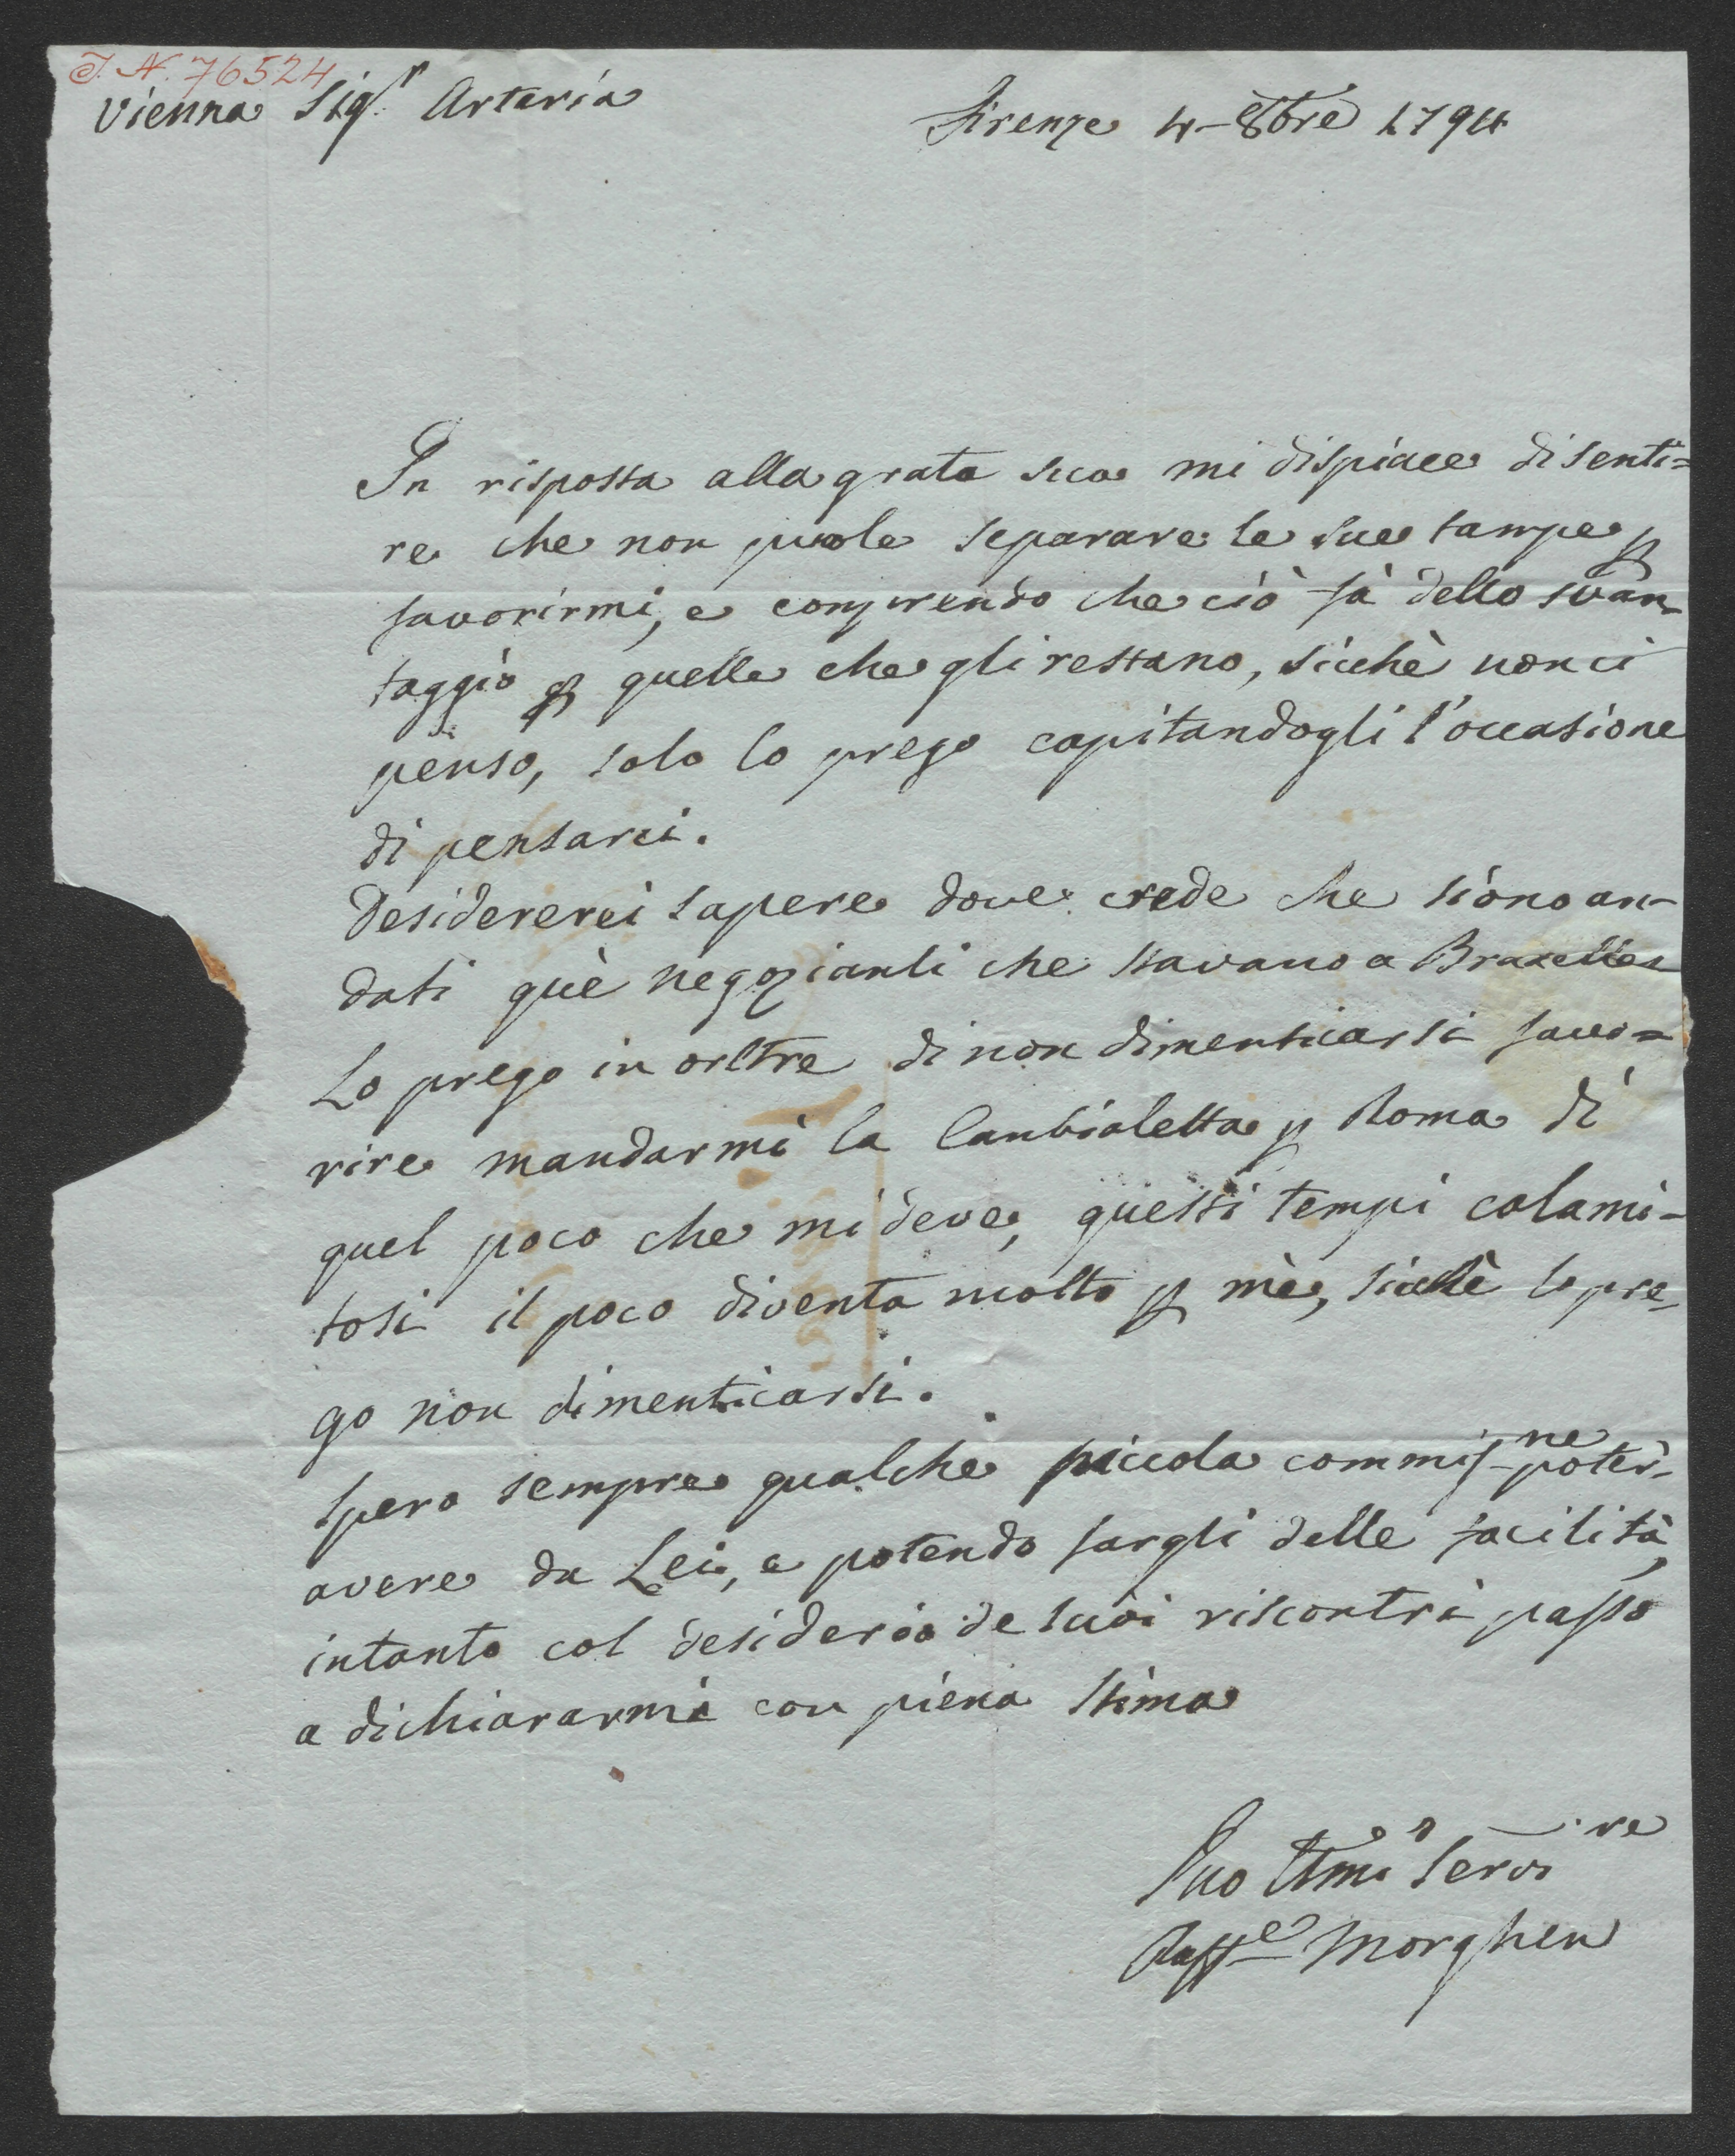 J. N. 76524
Vienna Sig.r Artaria
Firenze 4-8bre 1794
In risposta alla grata sua mi dispiace di senti=
re che non puole separare le sue tampe p
favorirmi, e comprendo che ciò fà dello svan-
taggio p quelle che gli restano, sicchè non ci
penso, solo lo prego capitandogli l'occasione
di pensarci.
Desidererei sapere dove crede che siono an-
dati què negozianti che stavano a Braxelles
Lo prego in orltre di non dimenticarsi favo=
rire mandarmi la Canbialetta p Roma di
quel poco che mi deve, questi tempi calami-
tosi il poco diventa molto p mè, sicchè lo pre-
go non dimenticarsi.
Spero sempre qualche piccola commiss-ne poter-
avere da Lei, e potendo fargli delle facilità,
intanto col desiderio de suoi riscontri passo
a dichiararmi con piena stima
Suo Umo Servi-re
Raffe Morghen